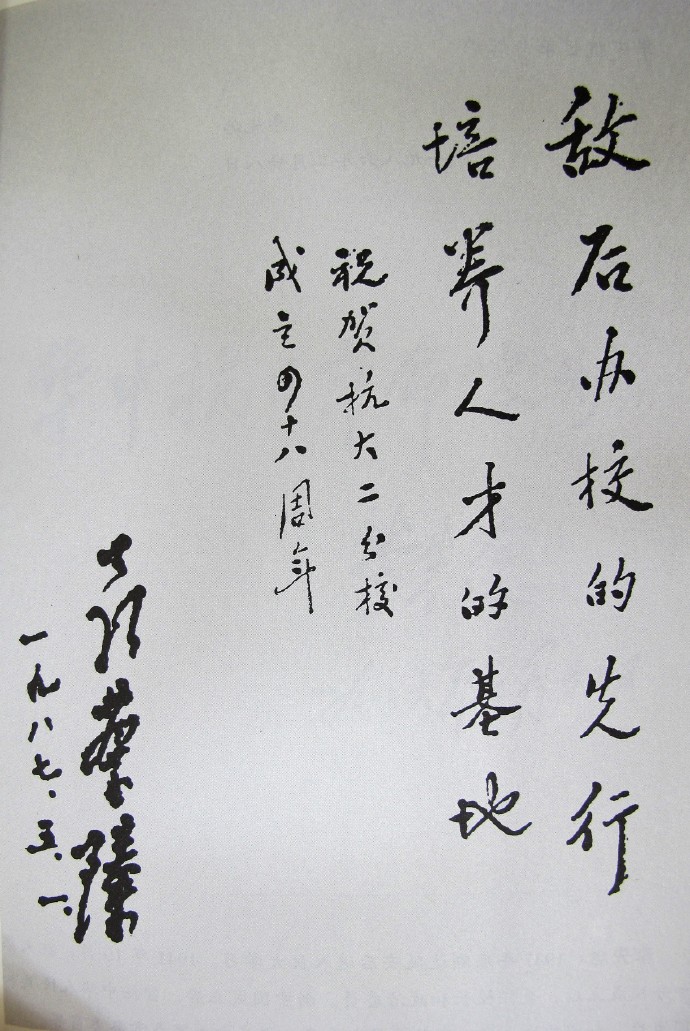 敌后办校的先行
培养人才的基地
祝贺抗大二分校
成立四十八周年
聂荣臻
一九八七、五、一、